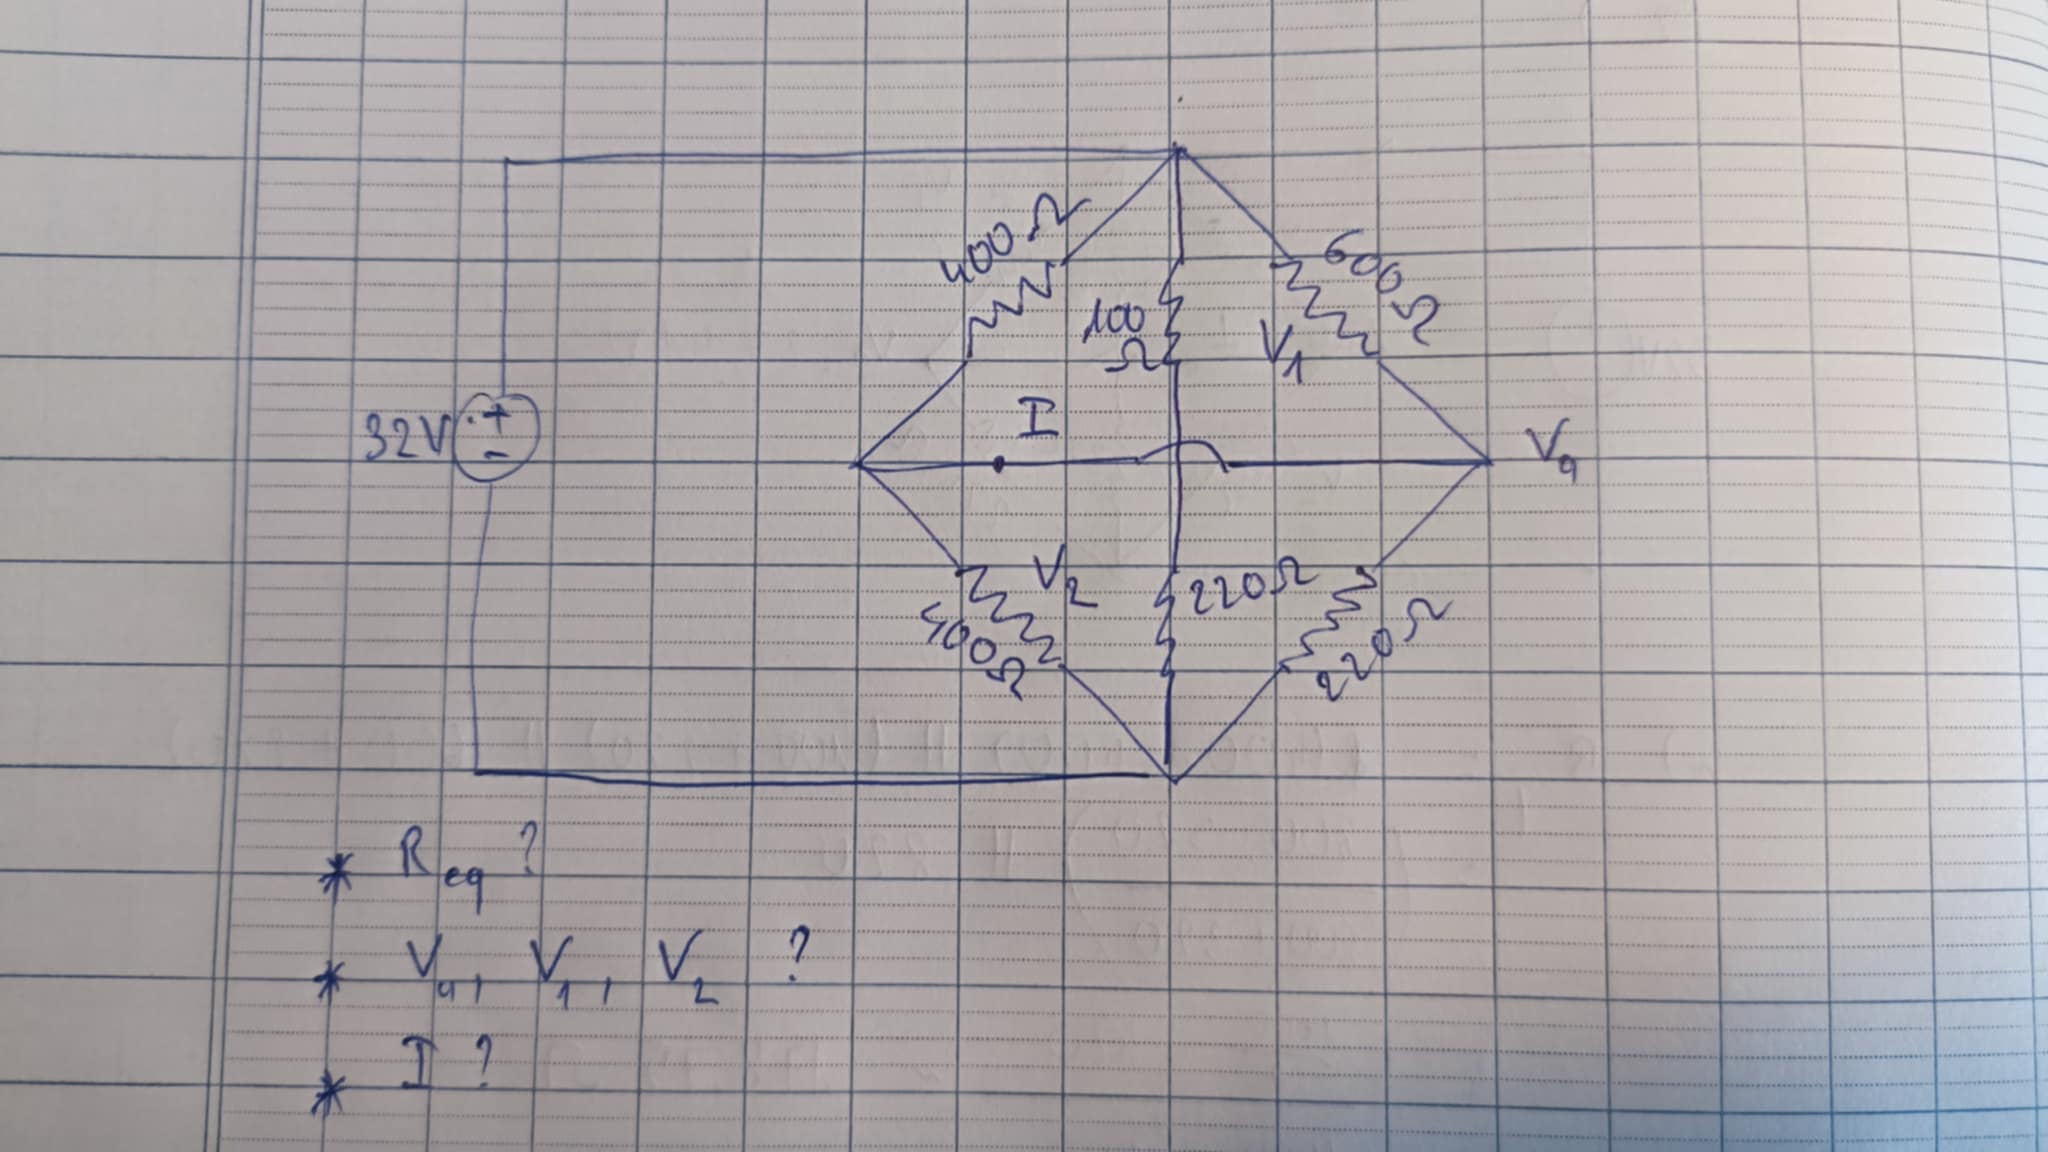 400 Ω
600 Ω
100 Ω
V1
32V + -
I
Va
V2
220Ω
400Ω
220 Ω
* Req ?
* Va, V1, V2 ?
* I ?